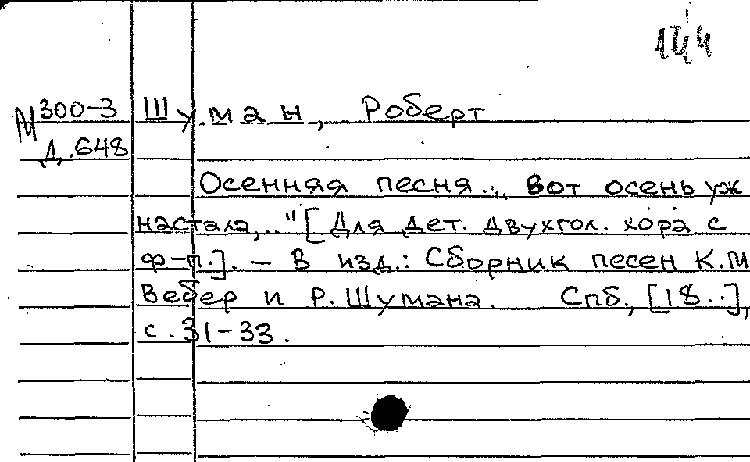 144
М 300-3 Шуман, Роберт
Д.648
Осенняя песня. „Вот осень уж
настала,.." [Для дет. двухгол. хора с
ф-п.]. – В изд.: Сборник песен К.М
Вебер и Р. Шумана. Спб, [18..],
с. 31-33.